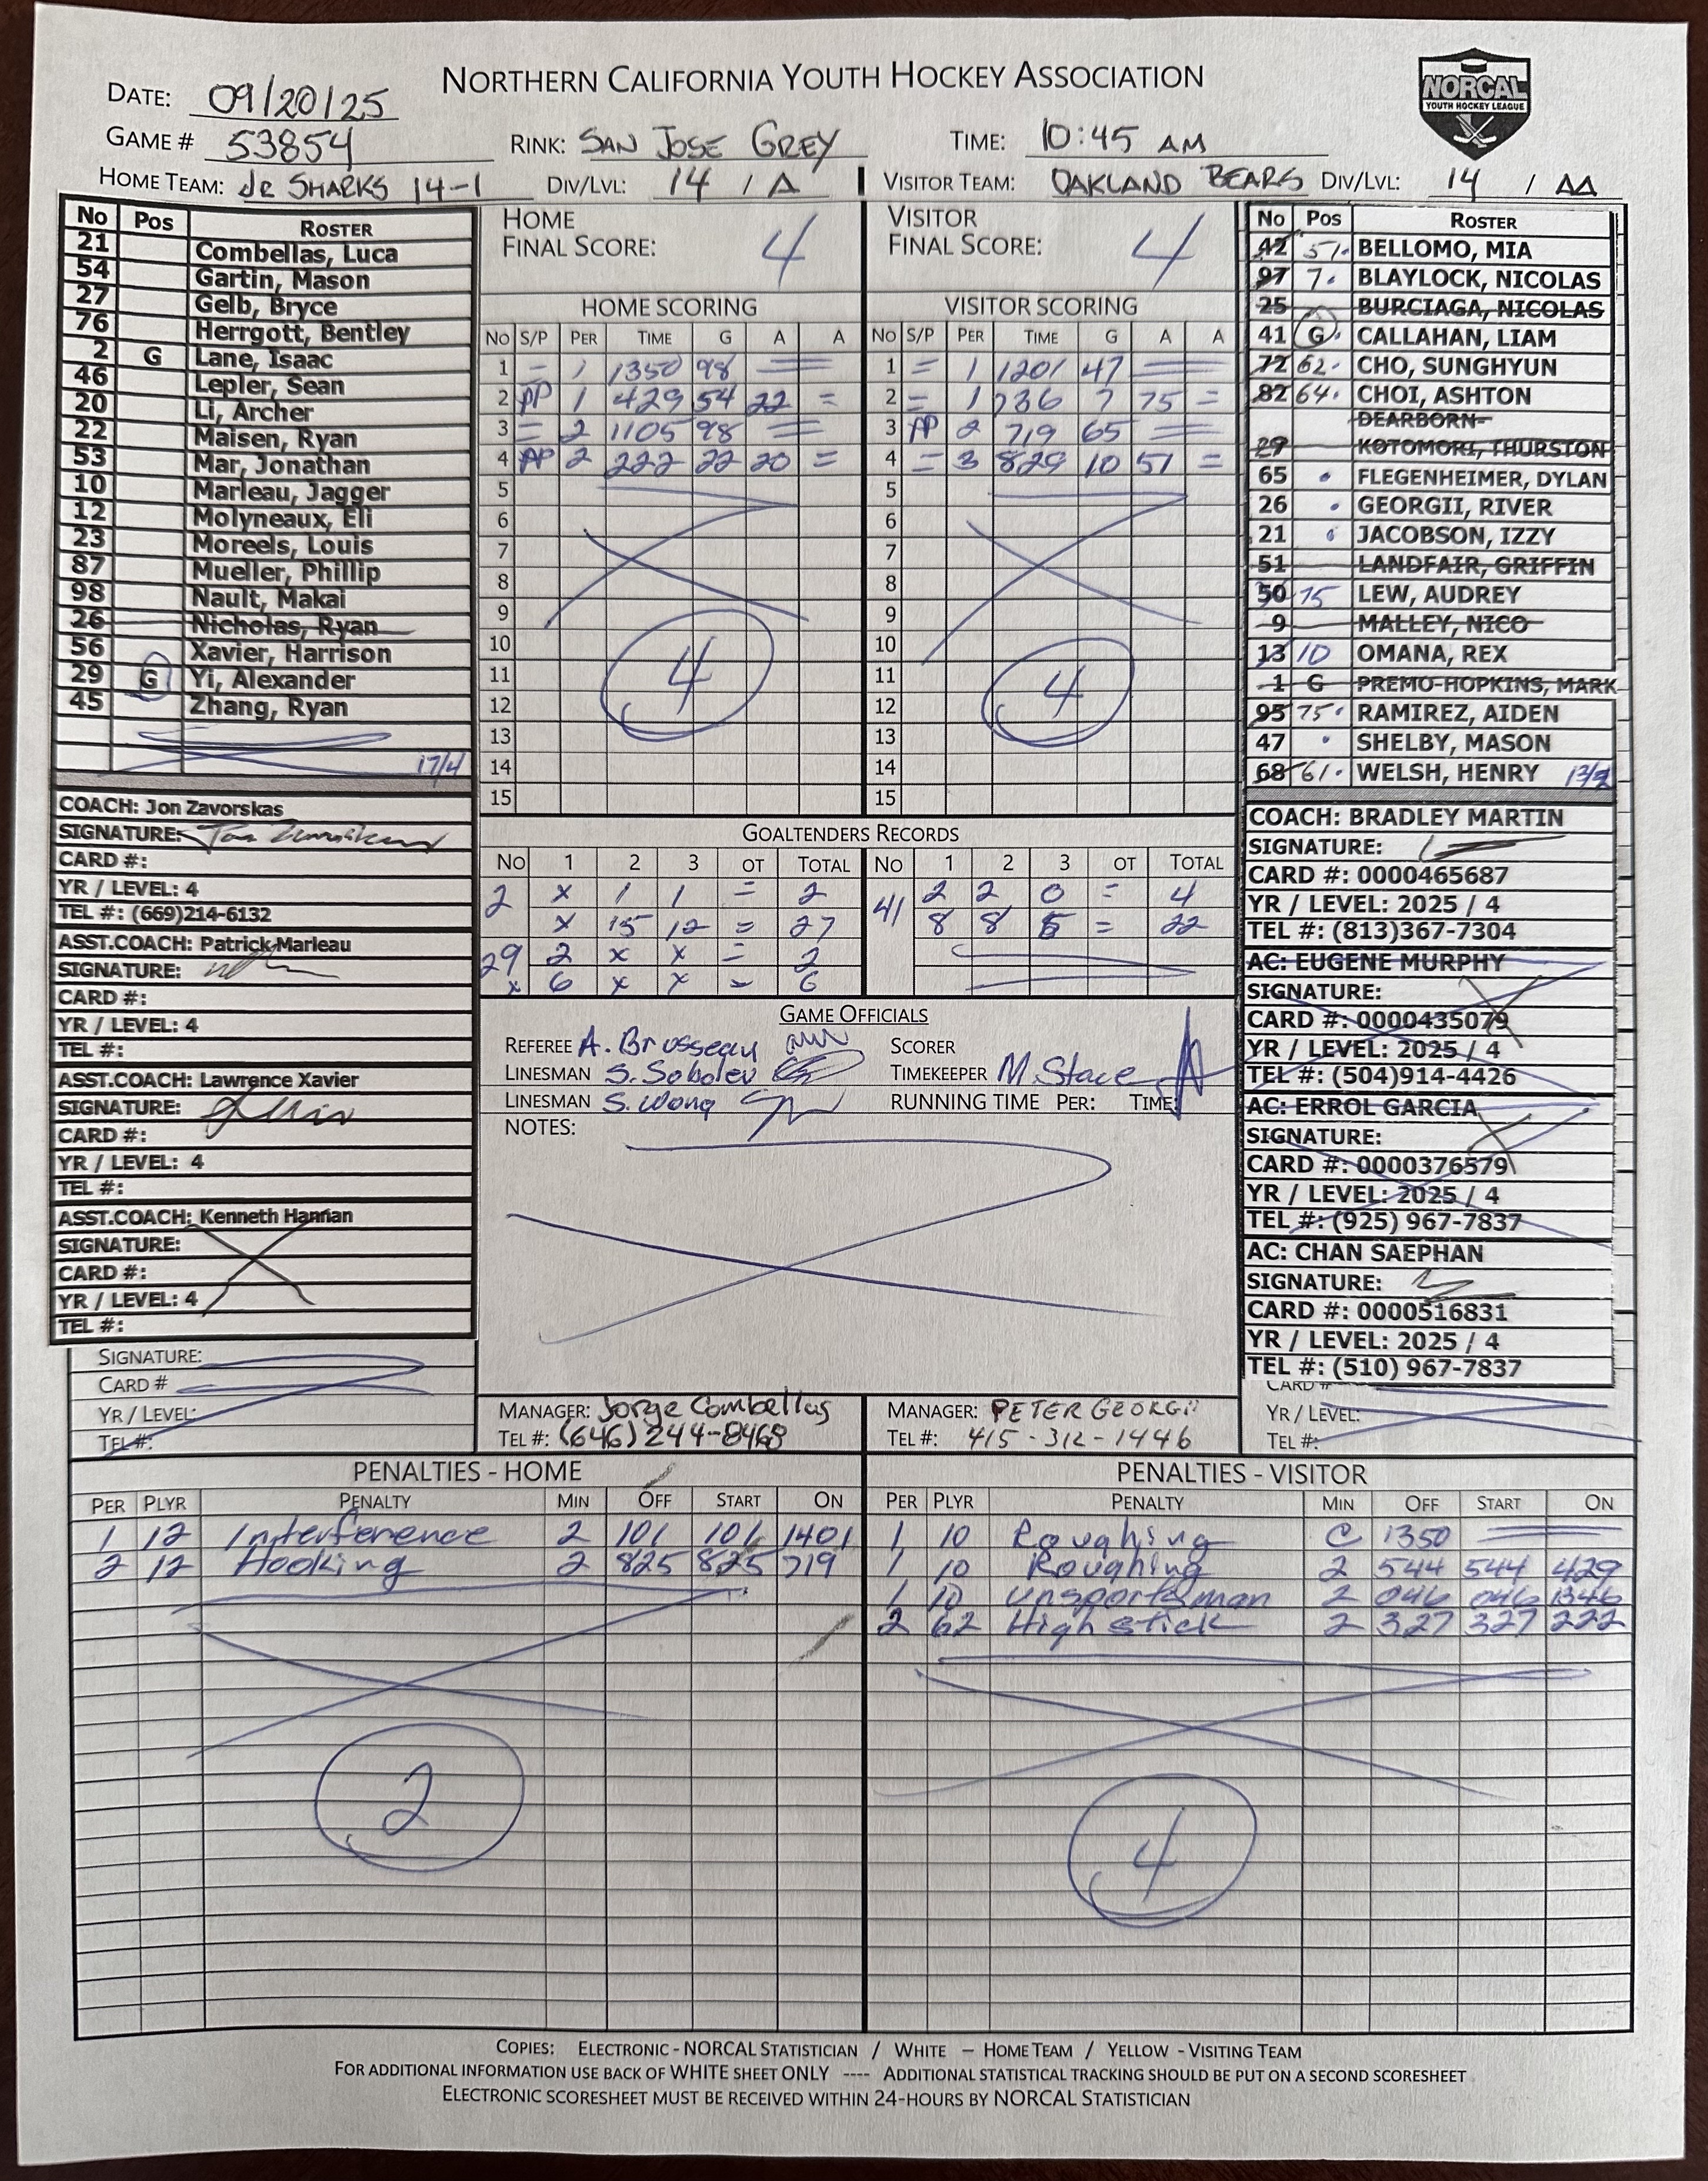 NORTHERN CALIFORNIA YOUTH HOCKEY ASSOCIATION
NORCAL
YOUTH HOCKEY LEAGUE
DATE: 09/20/25
GAME # 53854 RINK: SAN JOSE GREY TIME: 10:45 AM
HOME TEAM: JR SHARKS 14-1 DIV/LVL: 14 / A VISITOR TEAM: OAKLAND BEARS DIV/LVL: 14 / AA
No Pos ROSTER
21 Combellas, Luca
54 Gartin, Mason
27 Gelb, Bryce
76 Herrgott, Bentley
2 G Lane, Isaac
46 Lepler, Sean
20 Li, Archer
22 Maisen, Ryan
53 Mar, Jonathan
10 Marleau, Jagger
12 Molyneaux, Eli
23 Moreels, Louis
87 Mueller, Phillip
98 Nault, Makai
26 Nicholas, Ryan
56 Xavier, Harrison
29 G Yi, Alexander
45 Zhang, Ryan
17/4
COACH: Jon Zavorskas
SIGNATURE:
CARD #:
YR / LEVEL: 4
TEL #: (669)214-6132
ASST.COACH: Patrick Marleau
SIGNATURE:
CARD #:
YR / LEVEL: 4
TEL #:
ASST.COACH: Lawrence Xavier
SIGNATURE:
CARD #:
YR / LEVEL: 4
TEL #:
ASST.COACH: Kenneth Hannan
SIGNATURE:
CARD #:
YR / LEVEL: 4
TEL #:
SIGNATURE:
CARD #
YR / LEVEL:
TEL #:
HOME
FINAL SCORE: 4
HOME SCORING
No S/P PER TIME G A A
1 - 1 1350 98
2 PP 1 429 54 22 =
3 = 2 1105 98
4 PP 2 222 22 20 =
5
6
7
8
9
10
11
12
13
14
15
4
VISITOR
FINAL SCORE: 4
VISITOR SCORING
No S/P PER TIME G A A
1 = 1 1201 47
2 = 1 736 7 75 =
3 PP 2 719 65
4 = 3 829 10 51 =
5
6
7
8
9
10
11
12
13
14
15
4
GOALTENDERS RECORDS
No 1 2 3 OT TOTAL No 1 2 3 OT TOTAL
2 x 1 1 = 2 41 2 2 0 = 4
x 15 12 = 27 8 8 6 = 22
29 2 x x = 2
x 6 x x = 6
GAME OFFICIALS
REFEREE A. Brusseau SCORER
LINESMAN S. Sobolev TIMEKEEPER M. Stace
LINESMAN S. Wong RUNNING TIME PER: TIME:
NOTES:
MANAGER: Jorge Combellas MANAGER: PETER GEORGII
TEL #: (646) 244-8468 TEL #: 415-312-1446
No Pos ROSTER
42 51 BELLOMO, MIA
97 7 BLAYLOCK, NICOLAS
25 BURCIAGA, NICOLAS
41 G CALLAHAN, LIAM
72 62 CHO, SUNGHYUN
82 64 CHOI, ASHTON
DEARBORN-
29 KOTOMORI, THURSTON
65 FLEGENHEIMER, DYLAN
26 GEORGII, RIVER
21 JACOBSON, IZZY
51 LANDFAIR, GRIFFIN
50 15 LEW, AUDREY
9 MALLEY, NICO
13 10 OMANA, REX
1 G PREMO-HOPKINS, MARK
95 75 RAMIREZ, AIDEN
47 SHELBY, MASON
68 61 WELSH, HENRY
COACH: BRADLEY MARTIN
SIGNATURE:
CARD #: 0000465687
YR / LEVEL: 2025 / 4
TEL #: (813)367-7304
AC: EUGENE MURPHY
SIGNATURE:
CARD #: 0000435079
YR / LEVEL: 2025 / 4
TEL #: (504)914-4426
AC: ERROL GARCIA
SIGNATURE:
CARD #: 0000376579
YR / LEVEL: 2025 / 4
TEL #: (925) 967-7837
AC: CHAN SAEPHAN
SIGNATURE:
CARD #: 0000516831
YR / LEVEL: 2025 / 4
TEL #: (510) 967-7837
CARD #
YR / LEVEL:
TEL #:
PENALTIES - HOME
PER PLYR PENALTY MIN OFF START ON
1 12 Interference 2 101 101 1401
2 12 Hooking 2 825 825 719
2
PENALTIES - VISITOR
PER PLYR PENALTY MIN OFF START ON
1 10 Roughing C 1350
1 10 Roughing 2 544 544 429
1 10 Unsportsman 2 046 046 1346
2 62 High stick 2 327 327 222
4
COPIES: ELECTRONIC - NORCAL STATISTICIAN / WHITE – HOME TEAM / YELLOW - VISITING TEAM
FOR ADDITIONAL INFORMATION USE BACK OF WHITE SHEET ONLY ---- ADDITIONAL STATISTICAL TRACKING SHOULD BE PUT ON A SECOND SCORESHEET
ELECTRONIC SCORESHEET MUST BE RECEIVED WITHIN 24-HOURS BY NORCAL STATISTICIAN